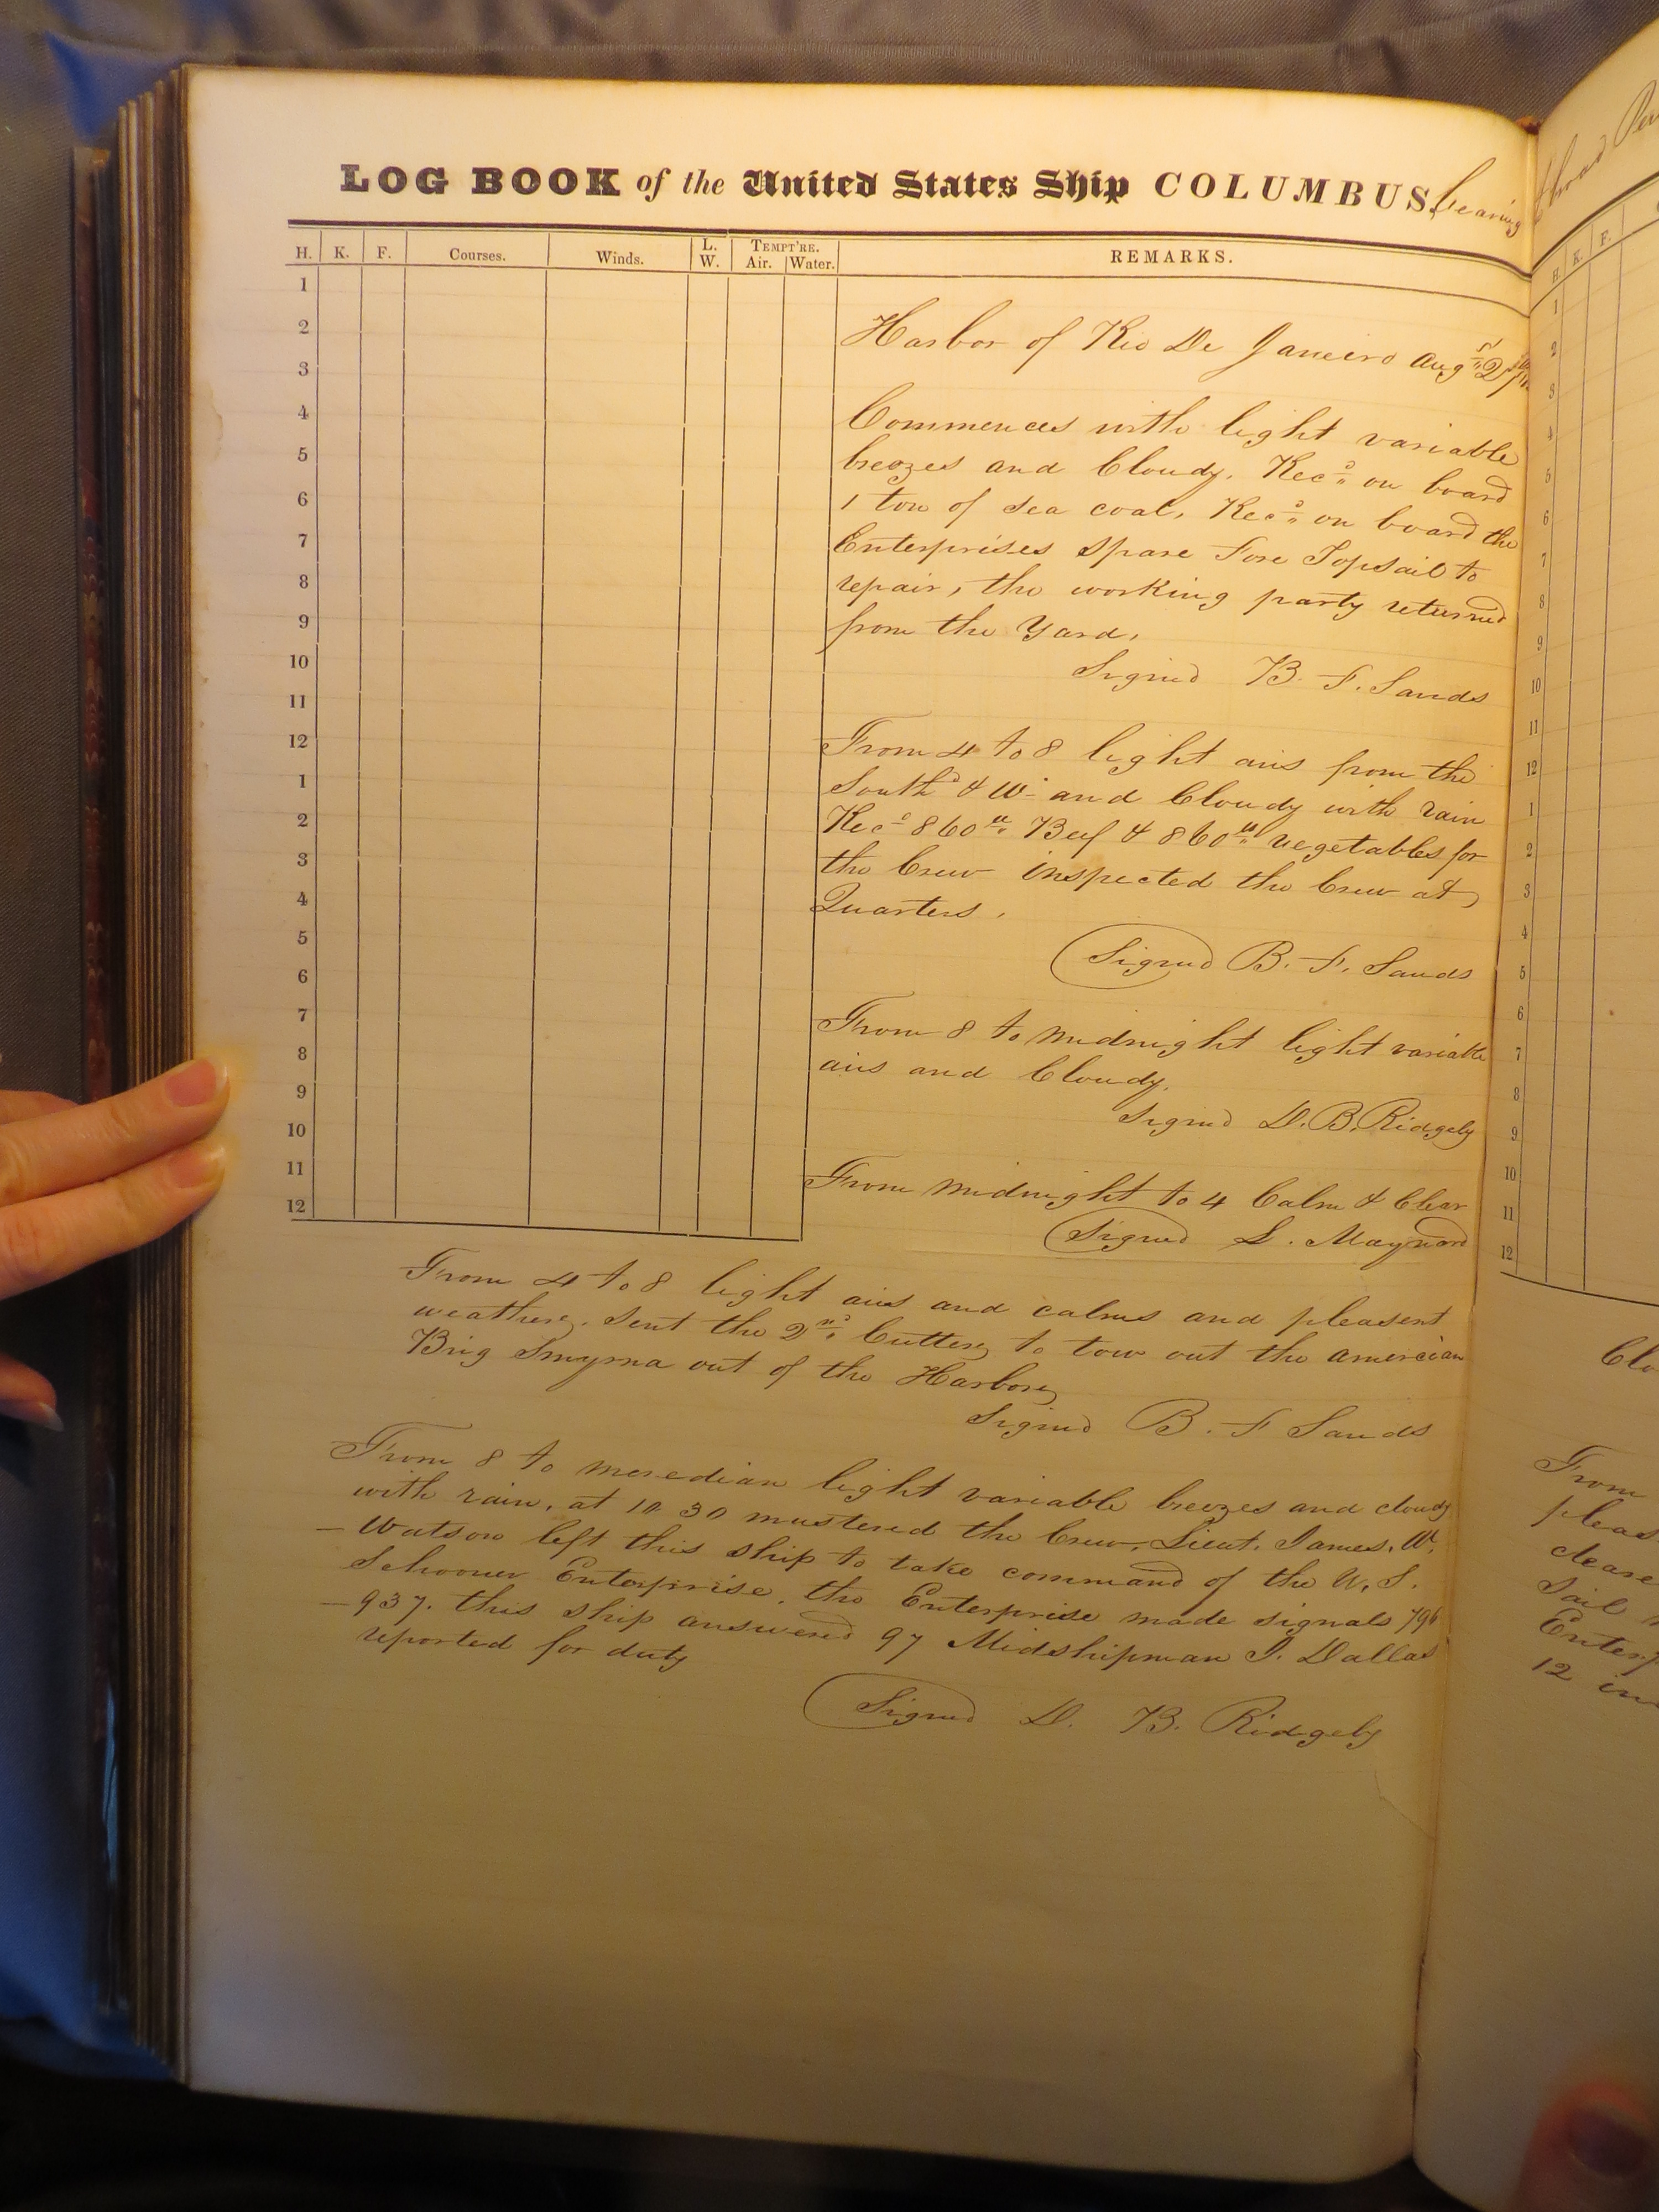 LOG BOOK of the United States Ship COLUMBUS, bearing
H. K. F. Courses. Winds. L. W. TEMPT'RE. Air. Water. REMARKS.
1
2
3
4
5
6
7
8
9
10
11
12
1
2
3
4
5
6
7
8
9
10
11
12
Harbor of Rio De Janeiro Aug
Commences with light variable
breezes and Cloudy. Recd on board
1 ton of sea coal, Recd on board the
Enterprises spare Fore Topsail to
repair, the working party returned
from the Yard,
Signed B. F. Sands
From 4 to 8 light airs from the
Southd & W. and Cloudy with rain
Recd 860 lbs Beef & 860 lbs vegetables for
the Crew inspected the Crew at
Quarters.
Signed B. F. Sands
From 8 to Midnight light variable
airs and Cloudy.
Signed D. B. Ridgely
From Midnight to 4 Calm & Clear
Signed L. Maynard
From 4 to 8 light airs and calms and pleasent
weather, sent the 2nd Cutter, to tow out the amercian
Brig Smyrna out of the Harbor,
Signed B. F Sands
From 8 to meredian light variable breezes and cloudy
with rain. at 10 30 mustered the Crew, Lieut. James. W.
- Watson left this ship to take command of the U. S.
Schooner Enterprise. the Enterprise made signals 796
- 937. this ship answered 97 Midshipman I. Dallas
reported for duty
Signed D. B. Ridgely
H. K. F.
1
2
3
4
5
6
7
8
9
10
11
12
1
2
3
4
5
6
7
8
9
10
11
12
From
12